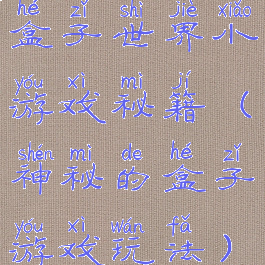 hé zǐ shì jiè xiǎo
盒子世界小
yóu xì mì jí
游戏秘籍（
shén mì de hé zǐ
神秘的盒子
yóu xì wán fǎ
游戏玩法）